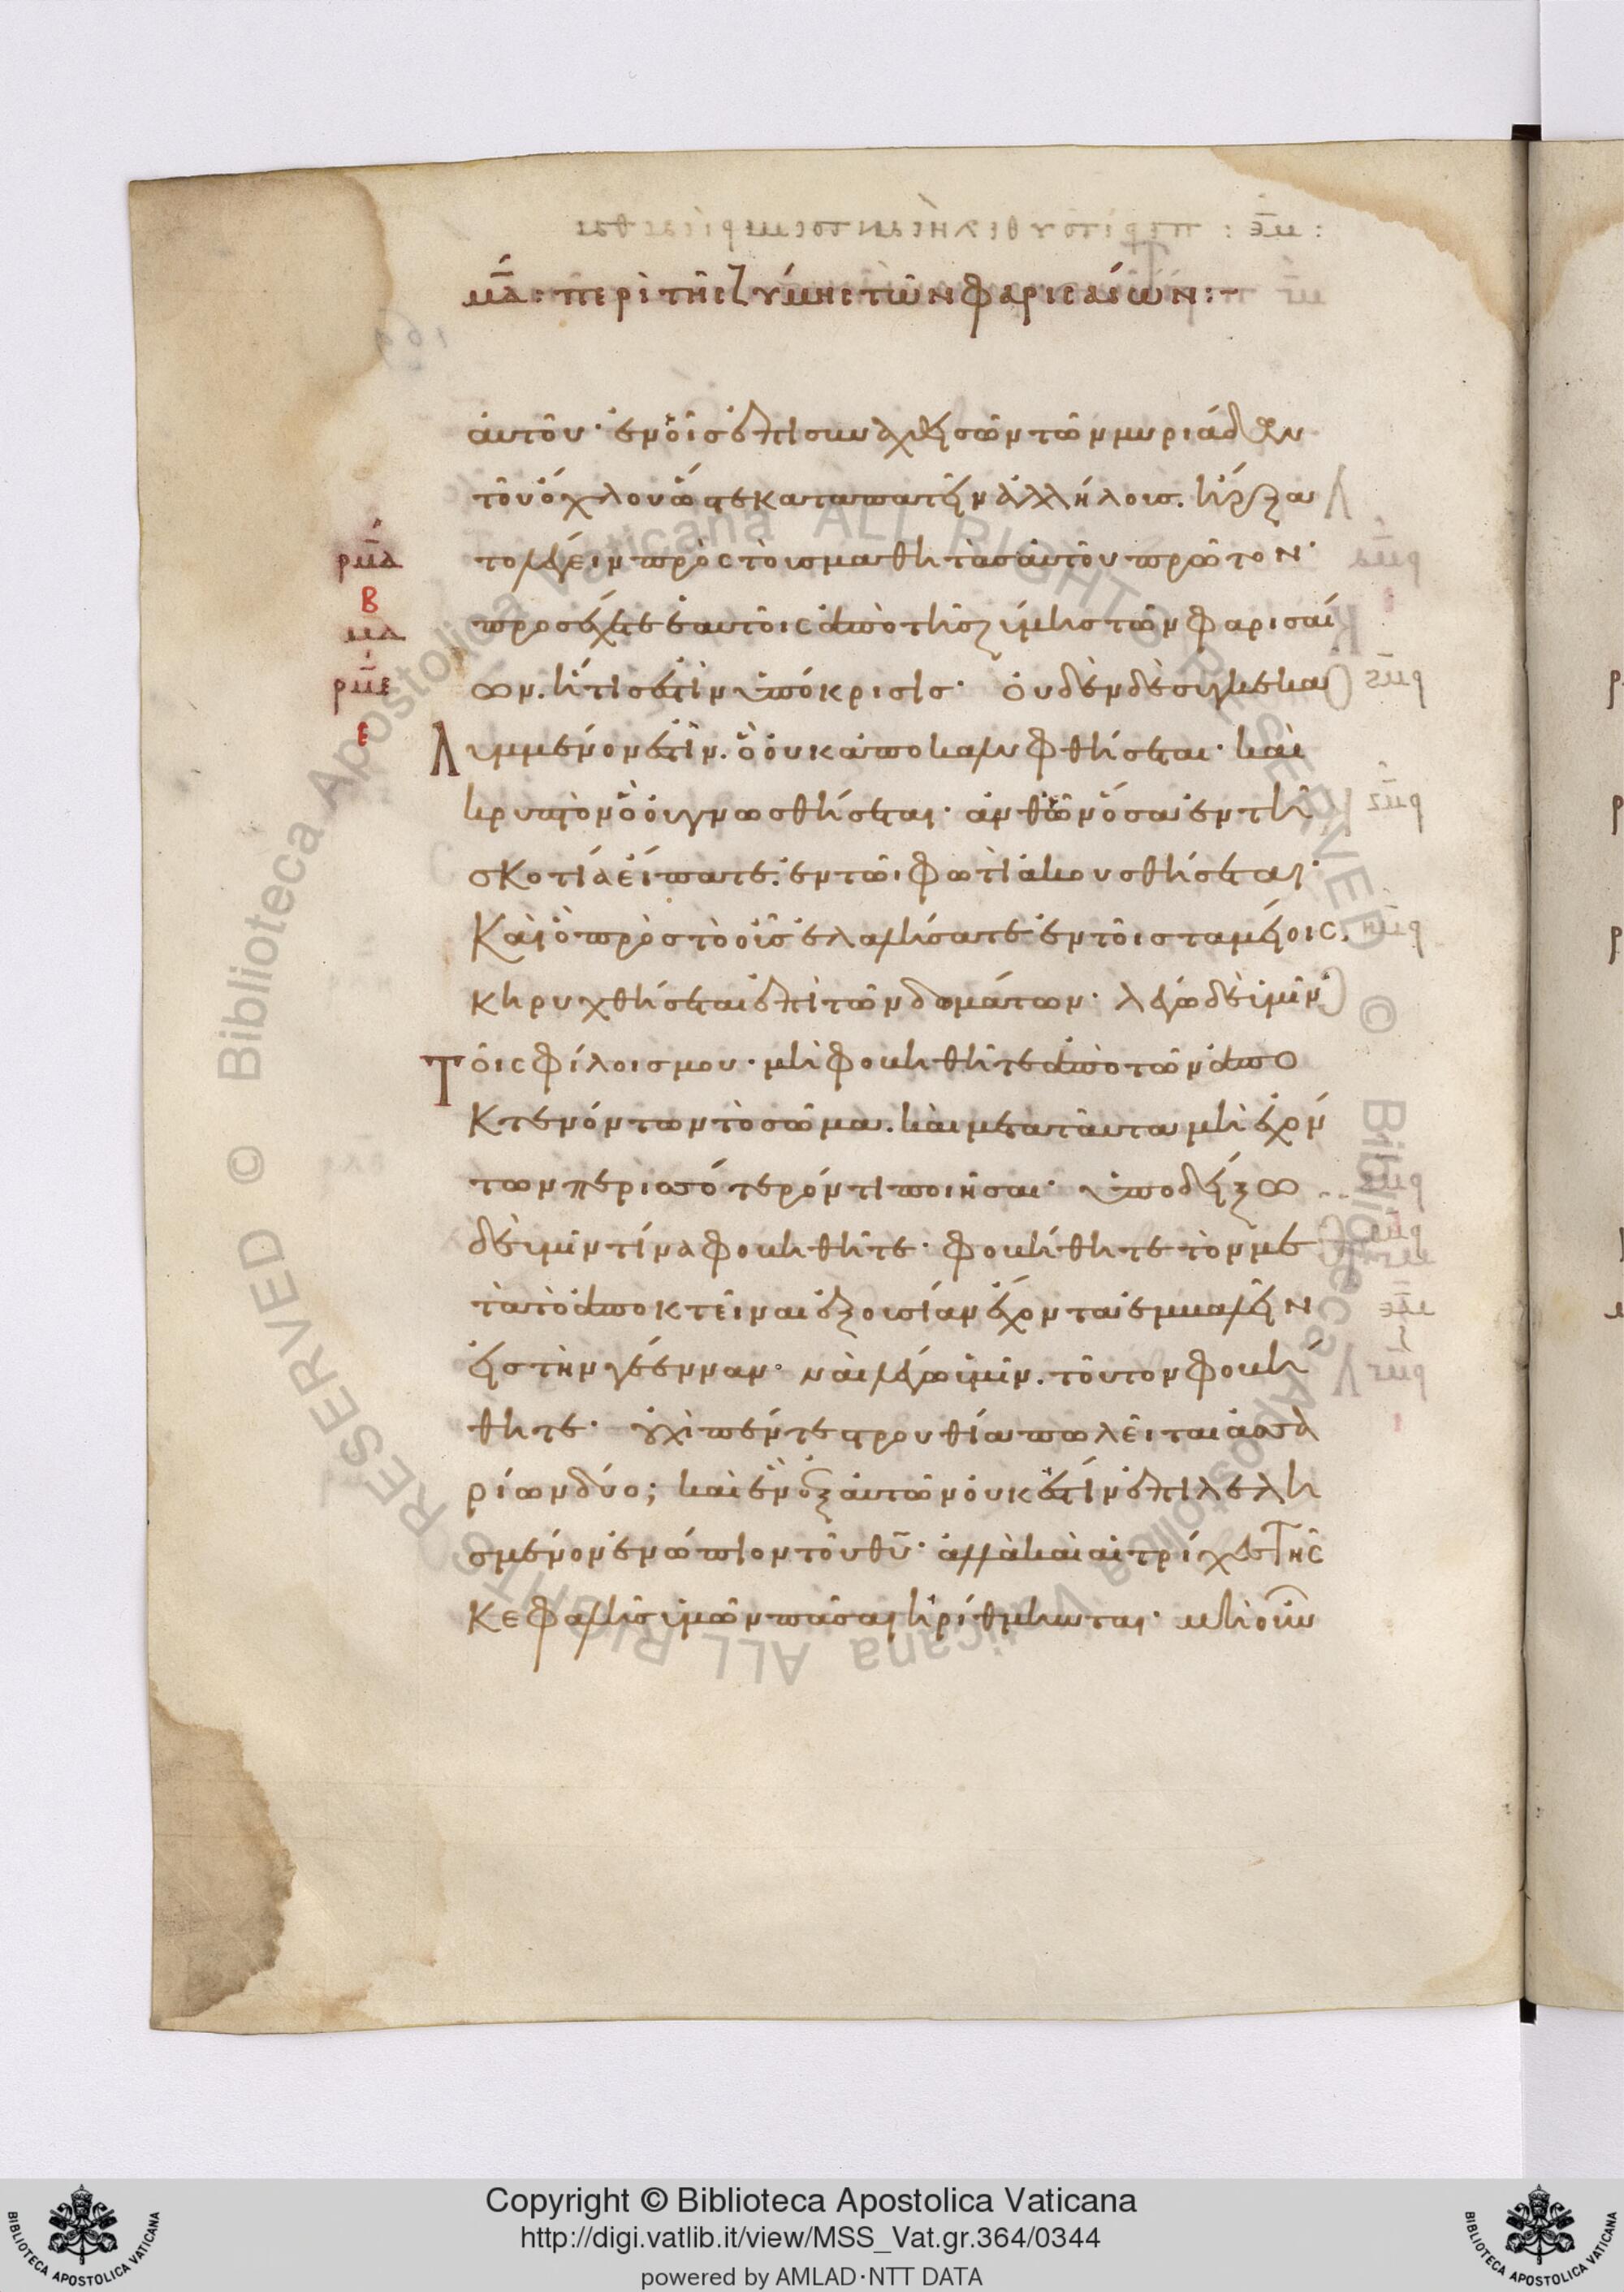 μδ: περὶ τῆς ζύμης τῶν φαρισαίων:-
αυτοῦ· ἐν οἷς ἐπισυναχθεισῶν τῶν μυριάδων
τοῦ ὄχλου ὥστε καταπατεῖν ἀλλήλους. ἤρξα
το λέγειν πρὸς τοὺς μαθητὰς αὐτοῦ πρῶτον·
ρμδ
β
μδ
προσέχετε ἑαυτοῖς ἀπὸ τῆς ζύμης τῶν φαρισαί
ρμε
ων. ἥτις ἐστὶν ὑπόκρισις· οὐδὲν δὲ συγκεκα
ε
λυμμένον ἐστὶν. ὃ οὐκ ἀποκαλυφθήσεται· καὶ
κρυπτὸν ὃ οὐ γνωσθήσεται· ἀνθ ὧν ὅσα ἐν τῆ
σκοτία εἴπατε. ἐν τῶι φωτὶ ἀκουσθήσεται·
Καὶ ὃ πρὸς τὸ οὖς ἐλαλήσατε ἐν τοῖς ταμείοις.
κηρυχθήσεται ἐπὶ τῶν δομάτων· λέγω δὲ ὑμῖν
Τοῖς φίλοις μου· μὴ φοβηθῆτε ἀπὸ τῶν ἀπο
Κτενόντων τὸ σῶμα. καὶ μετὰ ταῦτα μὴ ἐχόν
των περισσότερόν τι ποιῆσαι· ὑποδείξω
δὲ ὑμῖν τίνα φοβηθῆτε· φοβήθητε τὸν με
τὰ τὸ ἀποκτεῖναι ἐξουσίαν ἔχοντα ἐμβαλεῖν
εἰς τὴν γέενναν· ναὶ λέγω ὑμῖν. τοῦτον φοβή
θητε· οὐχὶ πέντε στρουθία πωλεῖται ἀσσα
ρίων δύο; καὶ ἓν ἐξ αὐτῶν οὐκ ἔστιν ἐπιλελη
σμένον ἐνώπιον τοῦ θυ· ἀλλὰ καὶ αἱ τρίχες τῆς
Κεφαλῆς ὑμῶν πᾶσαι ἠρίθμηνται· μὴ οὖν
Copyright © Biblioteca Apostolica Vaticana
http://digi.vatlib.it/view/MSS_Vat.gr.364/0344
powered by AMLAD·NTT DATA